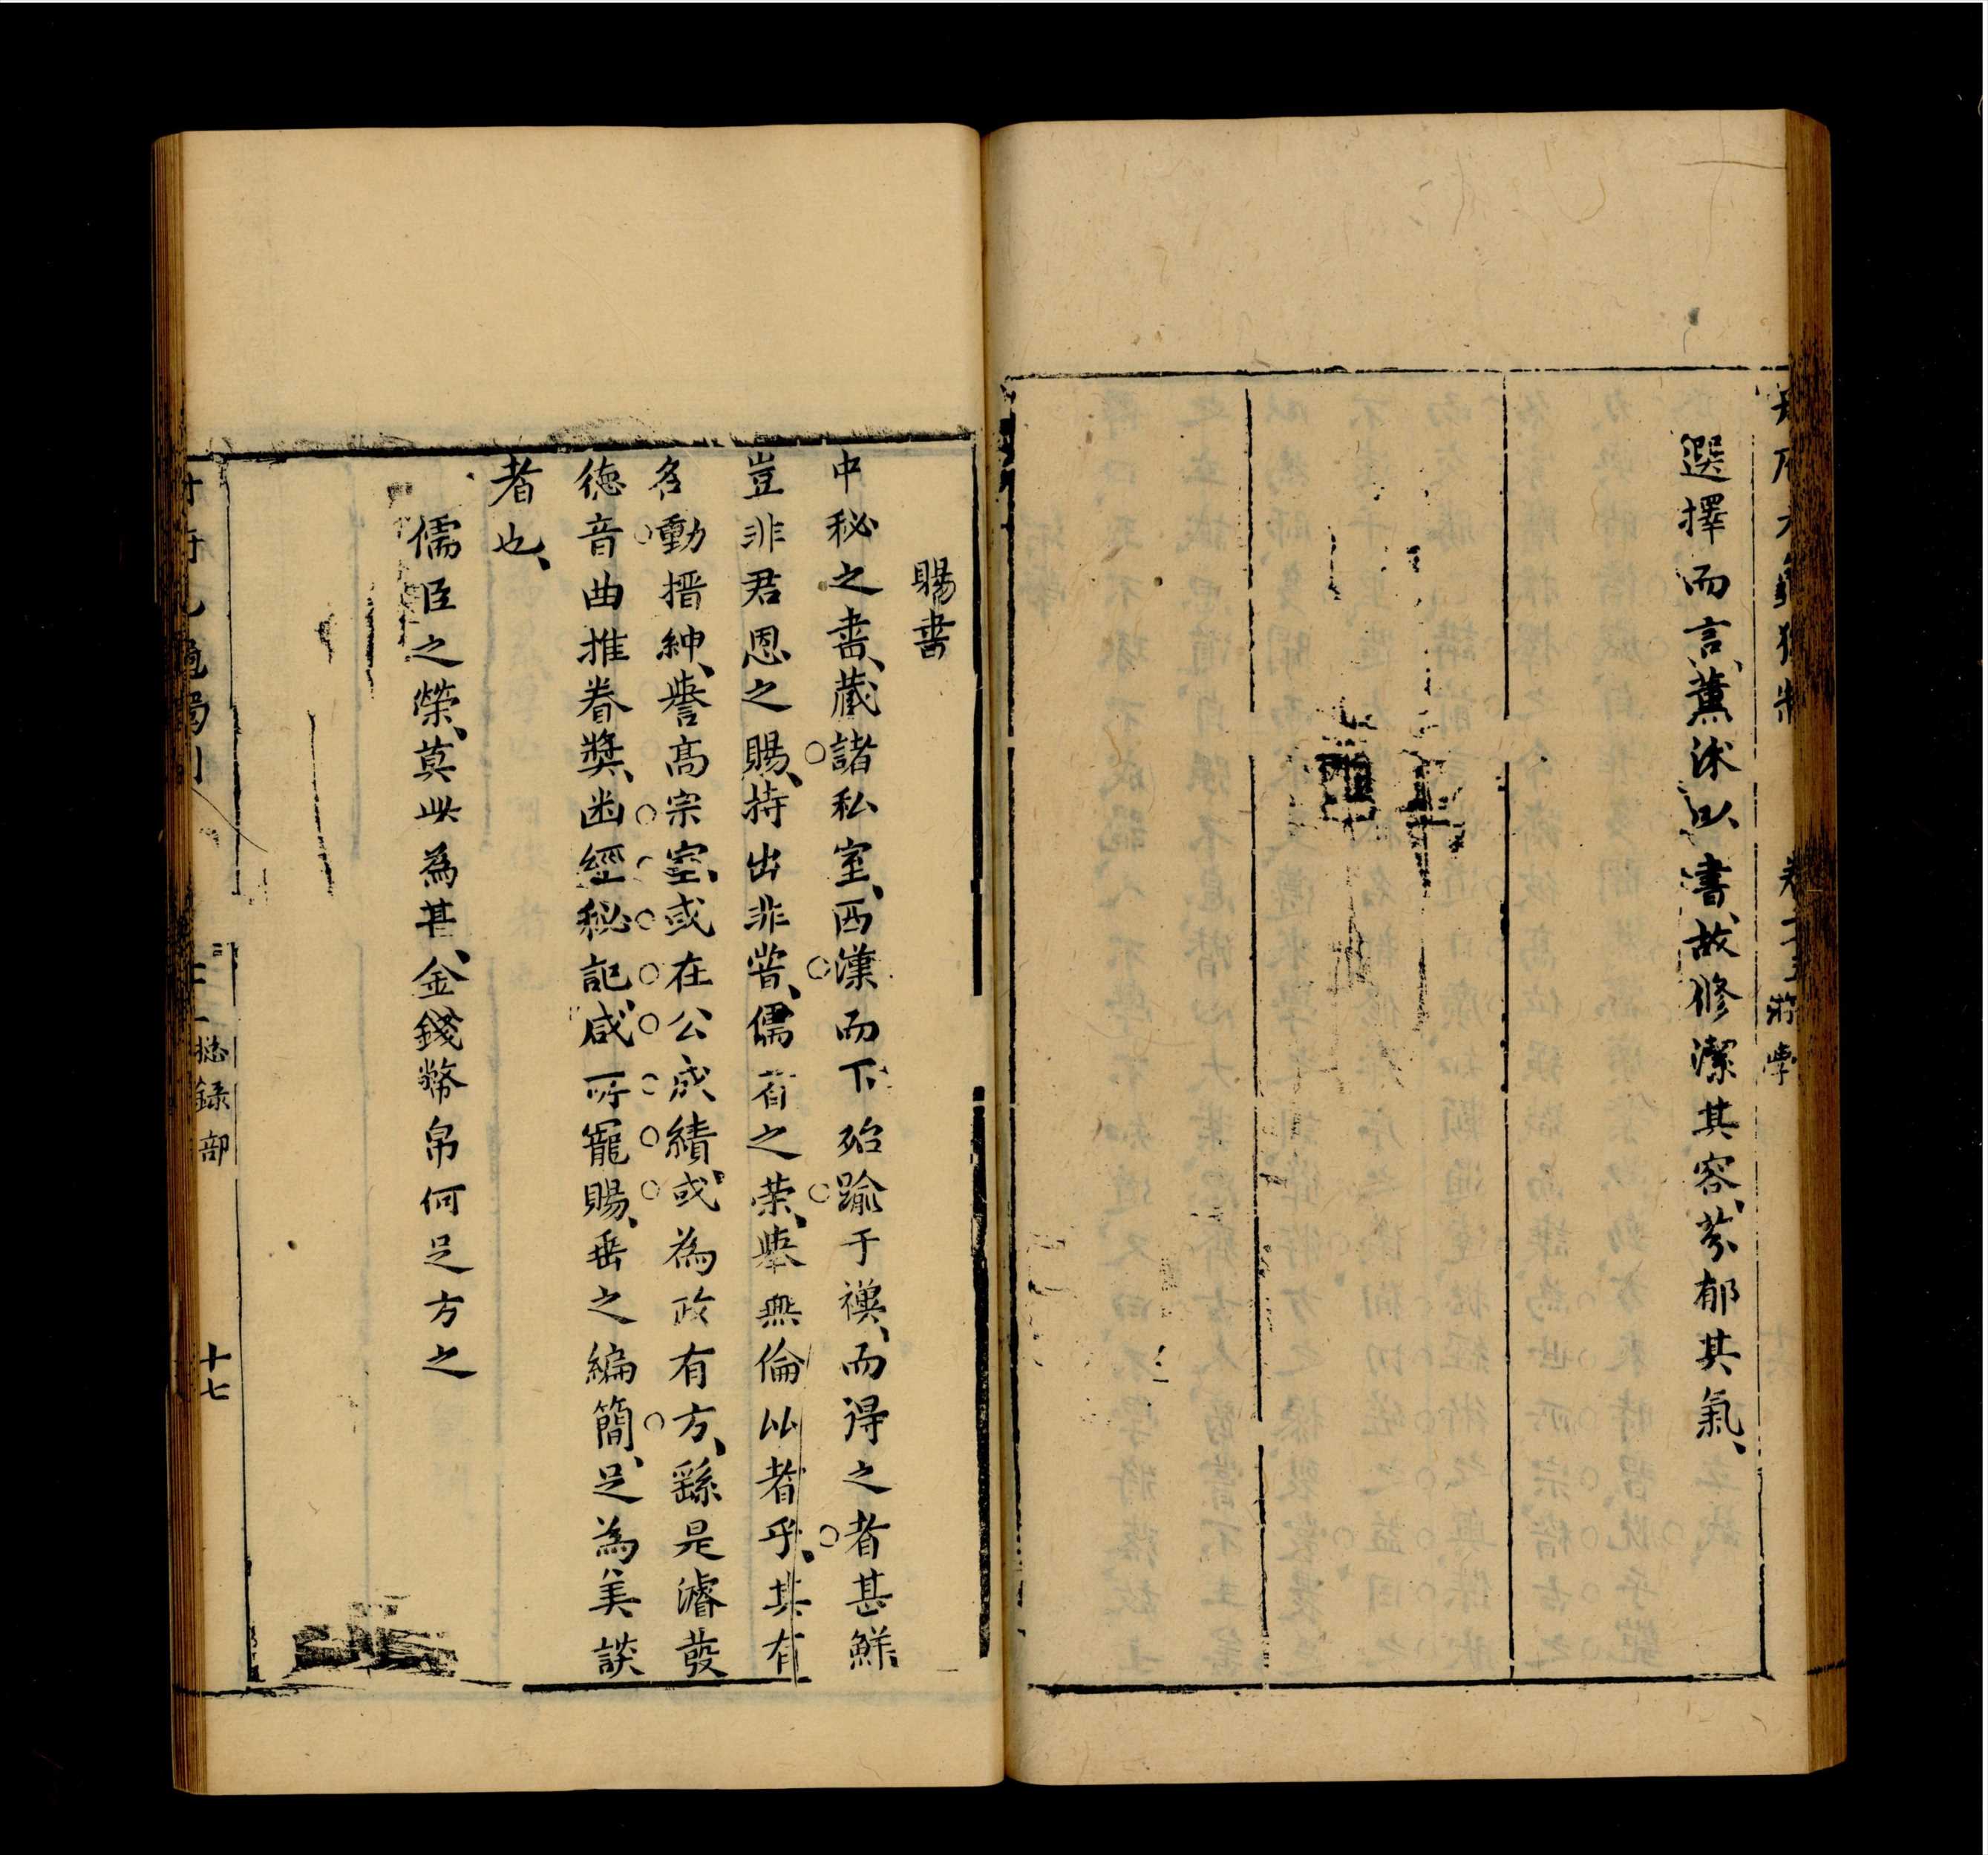 選擇而言、薰沐以書、故修潔其容、芬郁其氣、
賜書
中秘之書、藏諸私室、西漢而下殆踰于襈、而得之者甚鮮、
豈非君恩之賜、持出非嘗、儒有之荣、舉無倫比者乎、其有
名動搢紳、譽高宗室、或在公成績、或為政有方、繇是濬發
德音曲推眷奬、凾經秘記、咸所寵賜、垂之編簡、足為美談
者也、
儒臣之榮、莫此為甚、金錢幣帛何足方之
總録部
十七